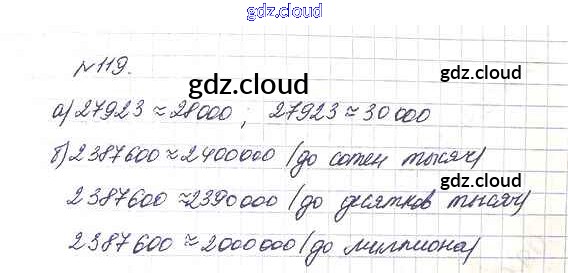 gdz.cloud
№119.
gdz.cloud
а) 27923 ≈ 28000; 27923 ≈ 30000
gdz.cloud
б) 2387600 ≈ 2400000 (до сотен тысяч)
gdz.cloud
2387600 ≈ 2390000 (до десятков тысяч)
gdz.cloud
2387600 ≈ 2000000 (до миллиона)